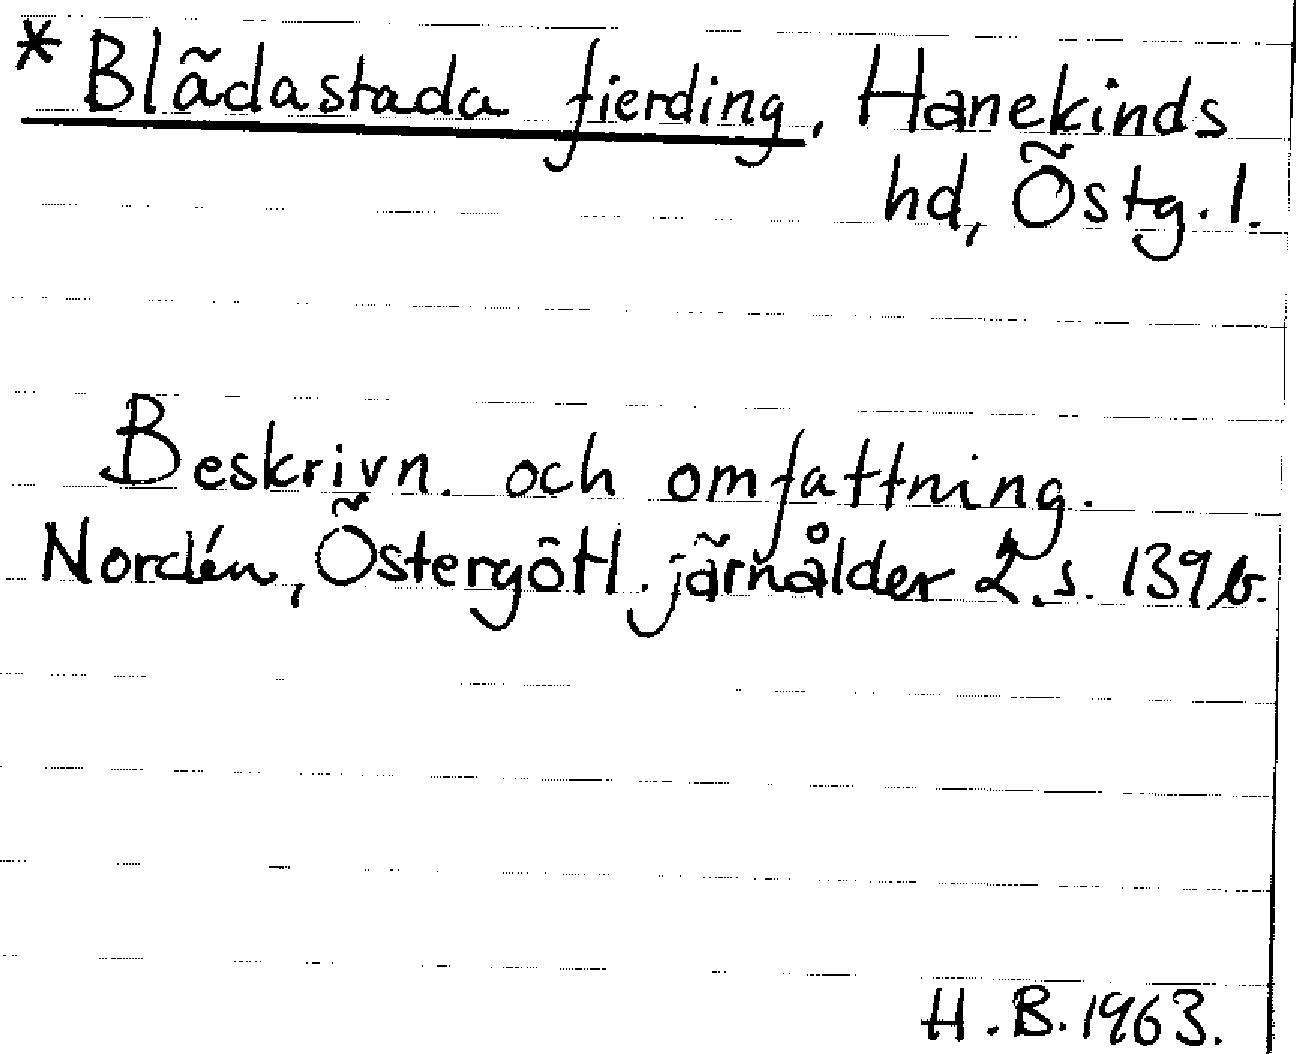 *Blädastada fierding, Hanekinds
hd, Östg. l.
Beskrivn. och omfattning.
Nordén, Östergötl. järnålder 2 s. 139 b.
H.B. 1963.